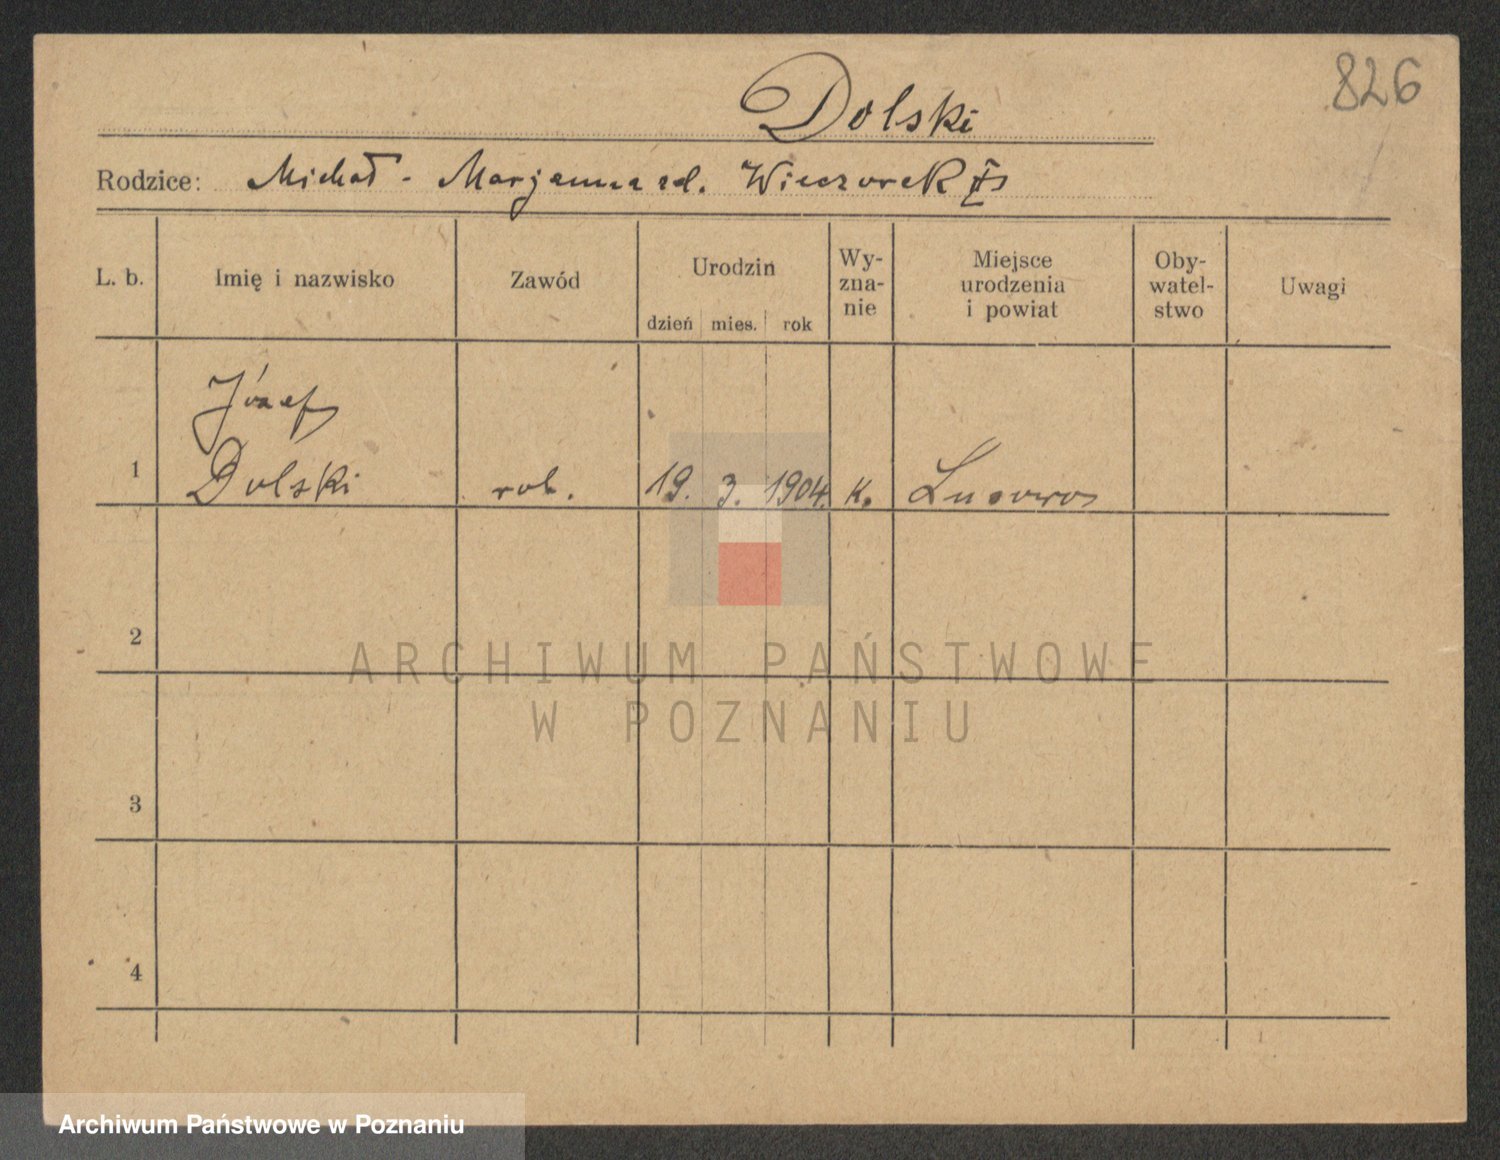 826
Dolski
Rodzice: Michał - Marjanna zd. Wieczorek
L. b. Imię i nazwisko Zawód Urodzin Wy- Miejsce Oby- Uwagi
zna- urodzenia watel-
nie i powiat stwo
dzień mies. rok
Józef
1 Dolski rob. 19. 3. 1904. K. Lusowo
2
3
4
ARCHIWUM PAŃSTWOWE
W POZNANIU
Archiwum Państwowe w Poznaniu